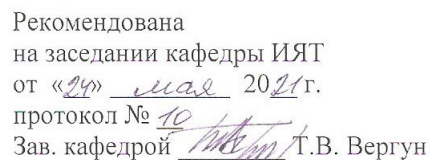 Рекомендована
на заседании кафедры ИЯТ
от «24» мая 2021 г.
протокол № 10
Зав. кафедрой Т.В. Вергун